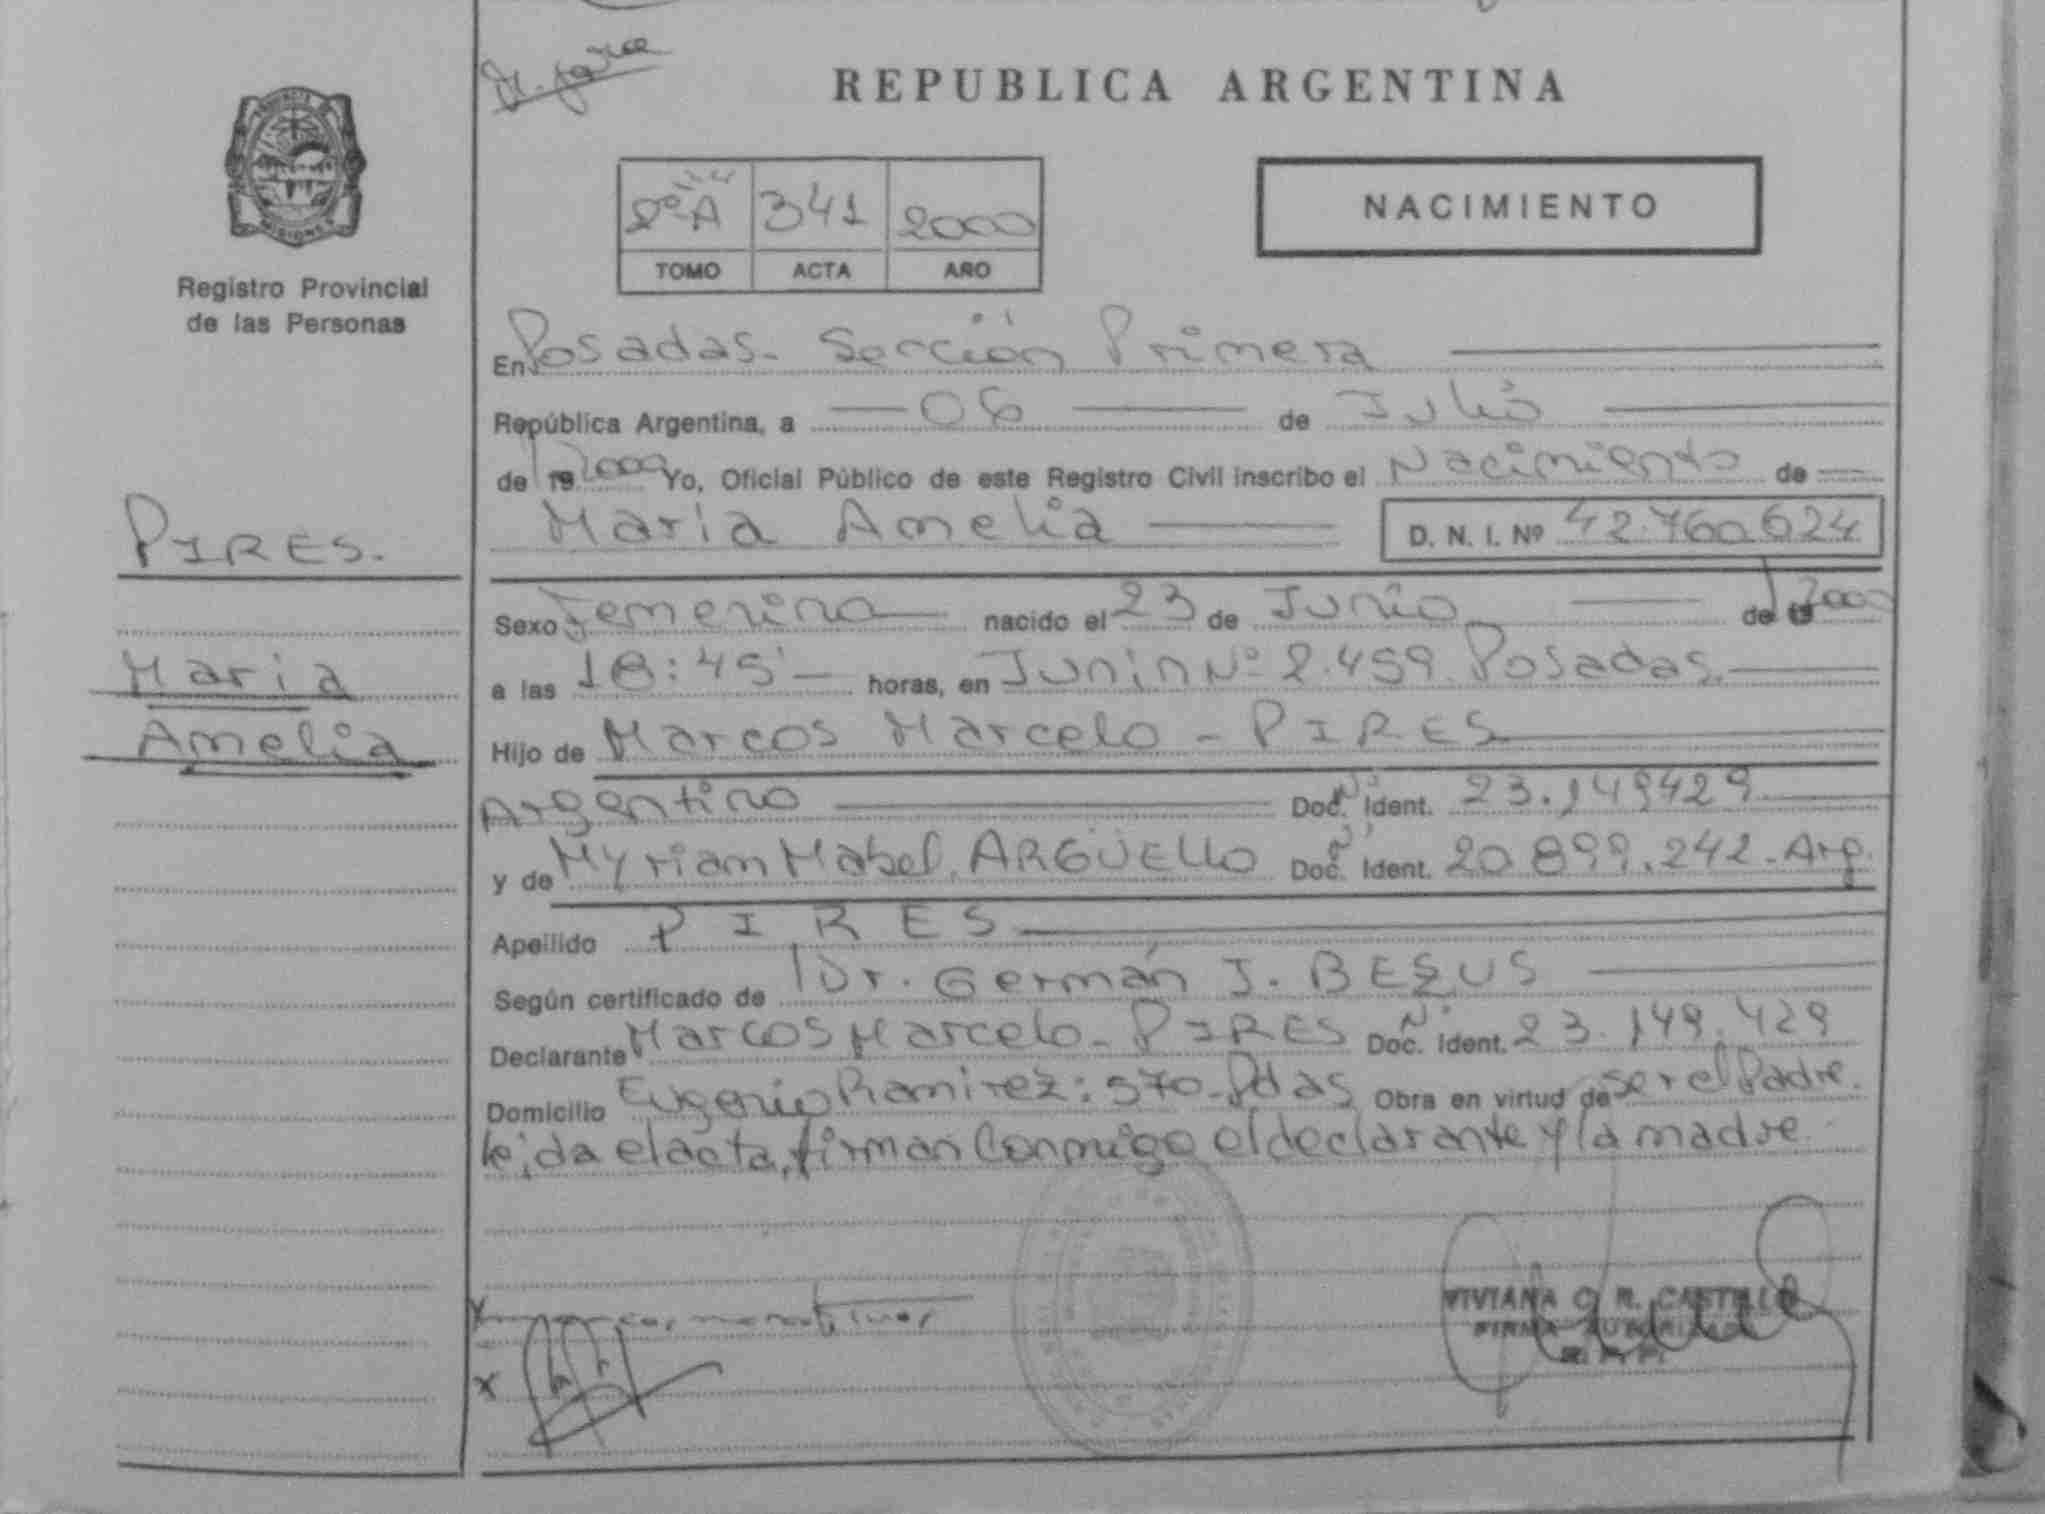 REPUBLICA ARGENTINA
MISIONES
Registro Provincial
de las Personas
2º A 341 2000
TOMO ACTA AÑO
NACIMIENTO
En Posadas- Sección Primera
República Argentina, a 06 de Julio
de 19 2000 Yo, Oficial Público de este Registro Civil inscribo el Nacimiento de
Maria Amelia D. N. I. Nº 42.760.624
PIRES.
Maria
Amelia
Sexo Femenino nacido el 23 de Junio de 19 2000
a las 18:45' horas, en Junín Nº 2.459. Posadas.
Hijo de Marcos Marcelo - PIRES
Argentino Doc. Nº Ident. 23.149429
y de Myriam Mabel. ARGÜELLO Doc. Nº Ident. 20.899.242-Arg.
Apellido PIRES
Según certificado de Dr. Germán J. BESUS
Declarante Marcos Marcelo- PIRES Doc. Nº Ident. 23.149.429
Domicilio Eugenio Ramirez: 570-Pdas Obra en virtud de ser el Padre.
leida el acta, firman Conmigo el declarante y la madre
VIVIANA C. R. CASTILLO
FIRMA AUTORIZADA